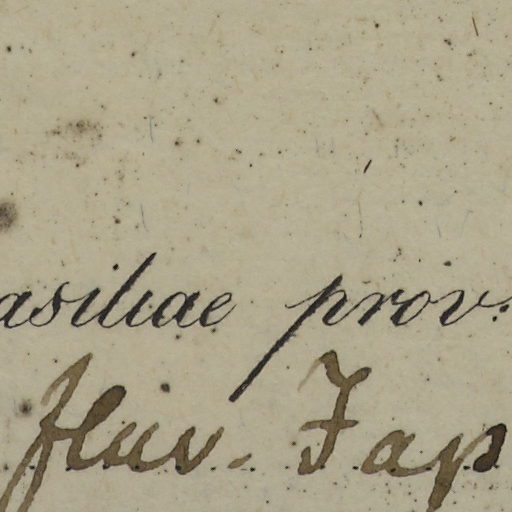 asiliae prov.
fluv. Jap